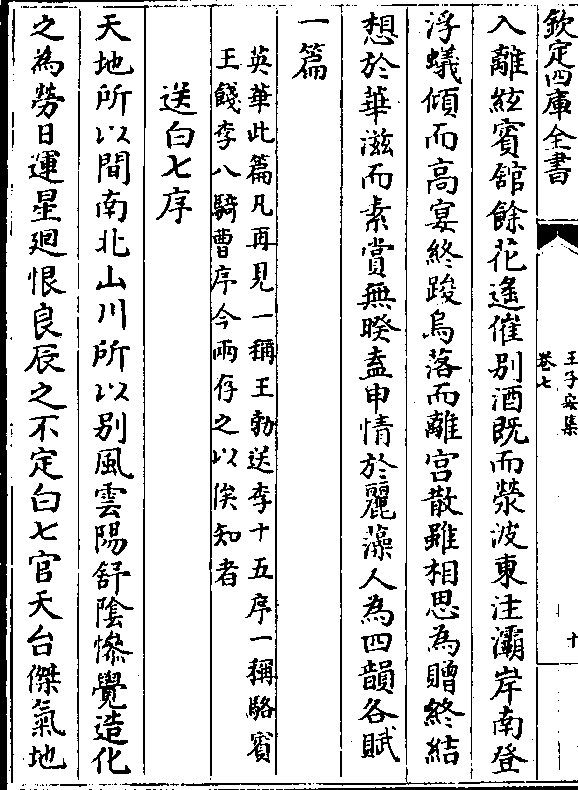 欽定四庫全書
王子安集
卷七
十
入離絃賓舘餘花遙催別酒既而滎波東注灞岸南登
浮蟻傾而高宴終踆烏落而離宮散雖相思為贈終結
想於華滋而素賞無暌盍申情於麗藻人為四韻各賦
一篇
英華此篇凡再見一稱王勃送李十五序一稱駱賓
王餞李八騎曹序今兩存之以俟知者
送白七序
天地所以間南北山川所以別風雲陽舒陰慘覺造化
之為勞日運星廻恨良辰之不定白七官天台傑氣地